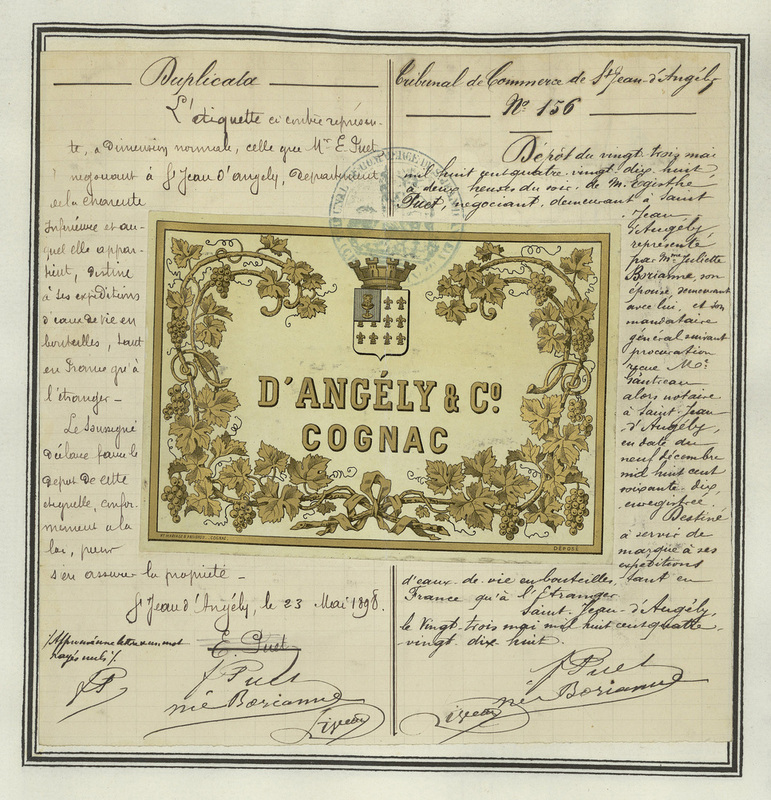 Duplicata
L'étiquette ci contre représen-
te, a dimension normale, celle que Mr E. Puet
négociant à St Jean d'Angely, Département
de la Charente
Inférieure et au-
quel elle appar-
tient, destine
à ses expéditions
d'eaux de vie en
bouteilles, tant
en France qu'à
l'étranger —
Le Soussigné
déclare faire le
dépot de cette
étiquette, confor-
mément a la
loi, pour
s'en assurer la propriété —
St Jean d'Angély, le 23 Mai 1898.
E. Puet
rayés nuls
J Puet
née Borianne
JP
Tribunal de Commerce de St Jean-d'Angély
No 156
Dépôt du vingt trois mai
mil huit cent quatre-vingt dix-huit
à deux heures du soir, de M. Egisthe
Puet, négociant, demeurant à Saint
Jean
d'Angély,
représenté
par Mme Juliette
Borianne, son
épouse demeurant
avec lui, et son
mandataire
général suivant
procuration
reçue Me
Gautreau
alors notaire
à Saint-Jean
d'Angély,
en date du
neuf décembre
mil huit cent
soixante-dix,
enregistrée
Destiné
à servir de
marque à ses
expéditions
d'eaux-de-vie en bouteilles, tant en
France qu'à l'Etranger
Saint-Jean-d'Angély,
le Vingt-trois mai mil huit cent quatre-
vingt dix-huit.
J Puet
née Borianne
D'ANGÉLY & Co
COGNAC
DÉPOSÉ